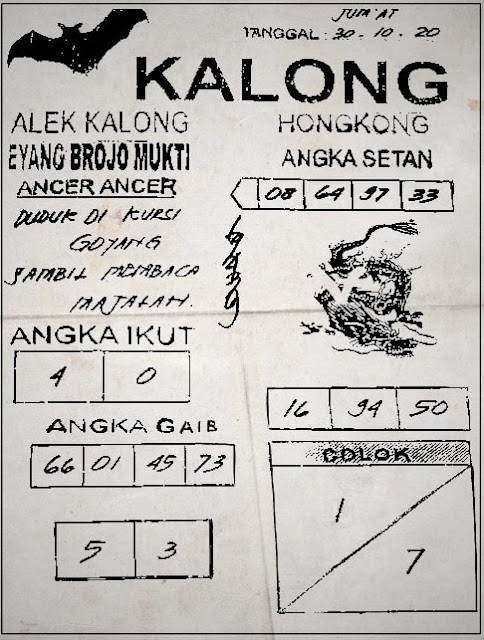 JUM'AT
TANGGAL : 30 - 10 - 20
KALONG
ALEK KALONG
HONGKONG
EYANG BROJO MUKTI
ANGKA SETAN
ANCER ANCER
08 64 97 33
DUDUK DI KURSI
GOYANG
SAMBIL MEMBACA
MAJALAH.
ANGKA IKUT
4 0
16 94 50
ANGKA GAIB
66 01 45 73
COLOK
1
7
5 3